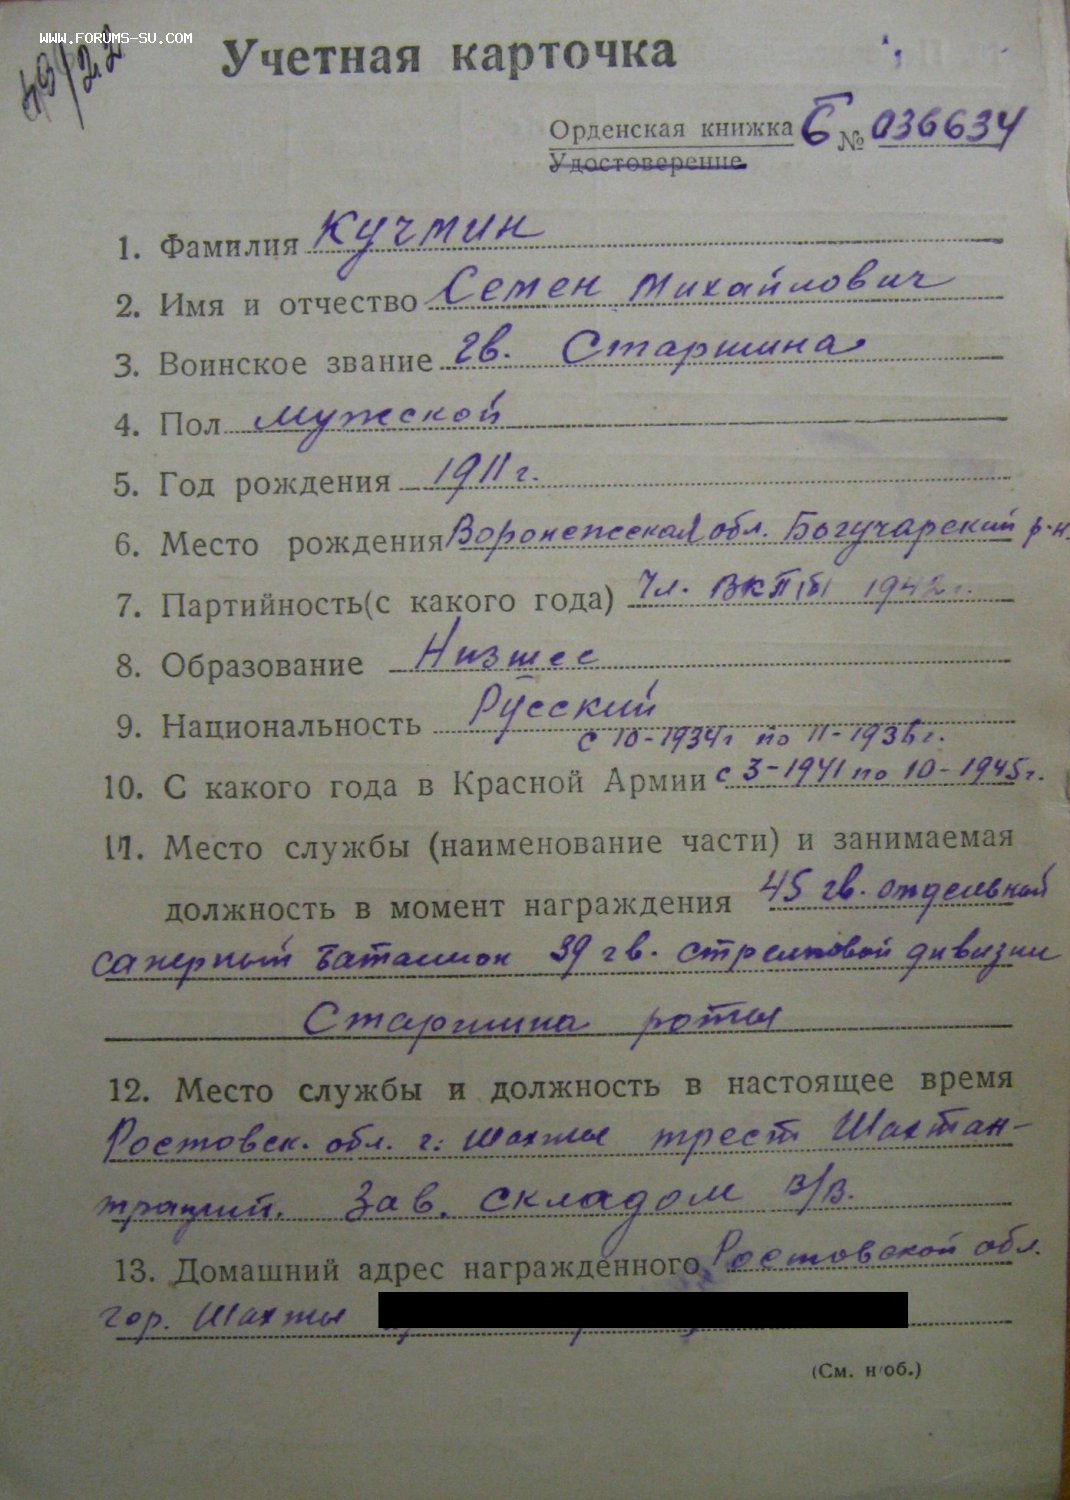 www.forums-su.com
49/22
Учетная карточка
Орденская книжка Б № 036634
Удостоверение
1. Фамилия Кучмин
2. Имя и отчество Семен Михайлович
3. Воинское звание гв. Старшина
4. Пол мужской
5. Год рождения 1911 г.
6. Место рождения Воронежская обл. Богучарский р-н.
7. Партийность (с какого года) Чл. ВКП(б) 1942 г.
8. Образование Низшее
9. Национальность Русский
с 10-1934 г по 11-1936 г.
10. С какого года в Красной Армии с 3-1941 по 10-1945 г.
11. Место службы (наименование части) и занимаемая
должность в момент награждения 45 гв. отдельный
саперный баталион 39 гв. стрелковой дивизии
Старшина роты
12. Место службы и должность в настоящее время
Ростовск. обл. г. Шахты трест Шахтан-
трацит. Зав. складом В/В.
13. Домашний адрес награжденного Ростовской обл.
гор. Шахты
(См. н/об.)